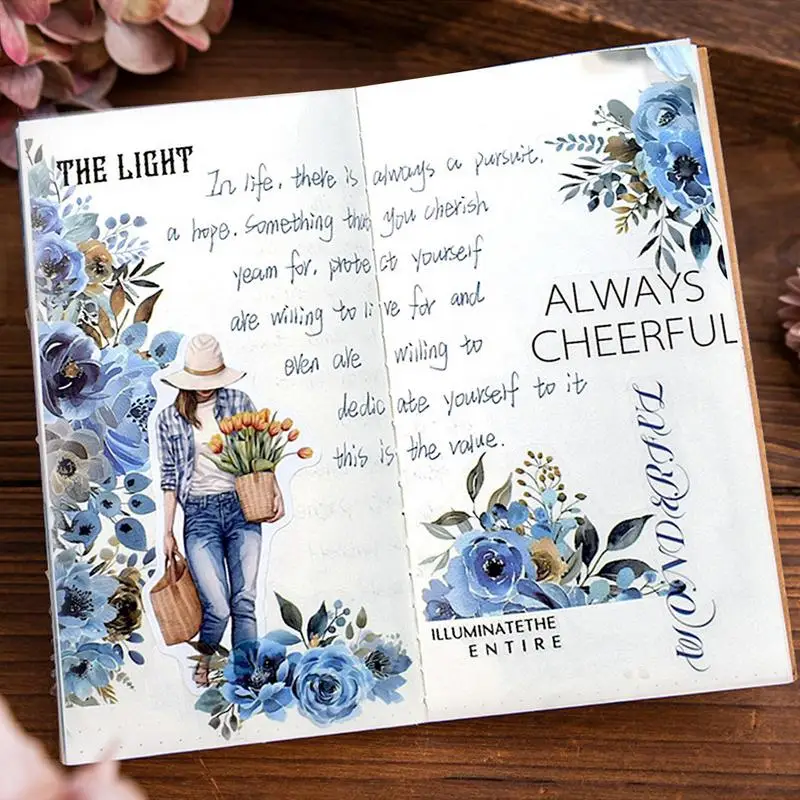 THE LIGHT
In life, there is always a pursuit.
a hope. Something that you cherish
yearn for, protect yourself
are willing to live for and
even are willing to
dedicate yourself to it
this is the value.
ALWAYS
CHEERFUL
WONDERFUL
ILLUMINATETHE
ENTIRE